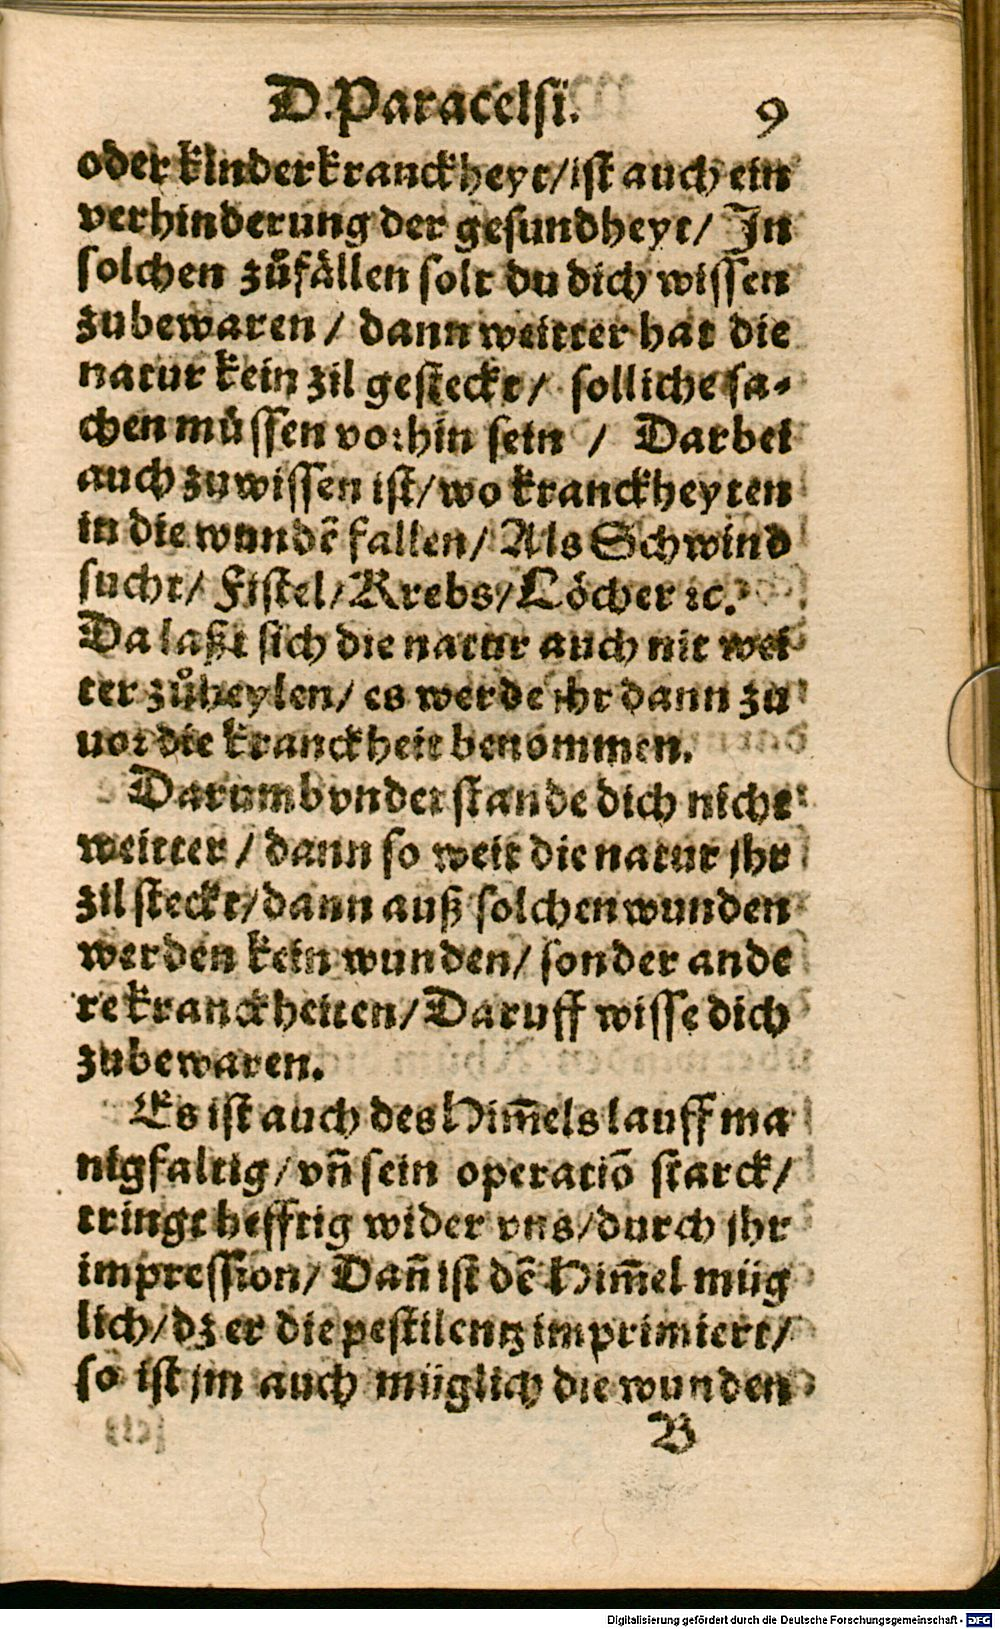 D. Paracelsi. 9
oder kinderkranckheyt/ist auch ein
verhinderung der gesundheyt/ In
solchen zůfällen solt du dich wissen
zubewaren / dann weitter hat die
natur kein zil gesteckt / solliche sa-
chen müssen vorhin sein / Darbei
auch zuwissen ist/wo kranckheyten
in die wundē fallen/ Als Schwind
sucht/ Fistel/Krebs/Löcher ꝛc.
Da laßt sich die natur auch nit wei
ter zůheylen/ es werde ihr dann zu
uor die kranckheit benommen.
Darumb vnderstande dich nicht
weitter / dann so weit die natur ihr
zil steckt/dann auß solchen wunden
werden kein wunden/ sonder ande
re kranckheiten/Daruff wisse dich
zubewaren.
Es ist auch des Him̄els lauff ma
nigfaltig/vn̄ sein operatiō starck/
tringt hefftig wider vns/durch ihr
impression/ Dan̄ ist dē Him̄el müg
lich/dz er die pestilentz imprimiert/
so ist jm auch müglich die wunden
B
Digitalisierung gefördert durch die Deutsche Forschungsgemeinschaft - DFG